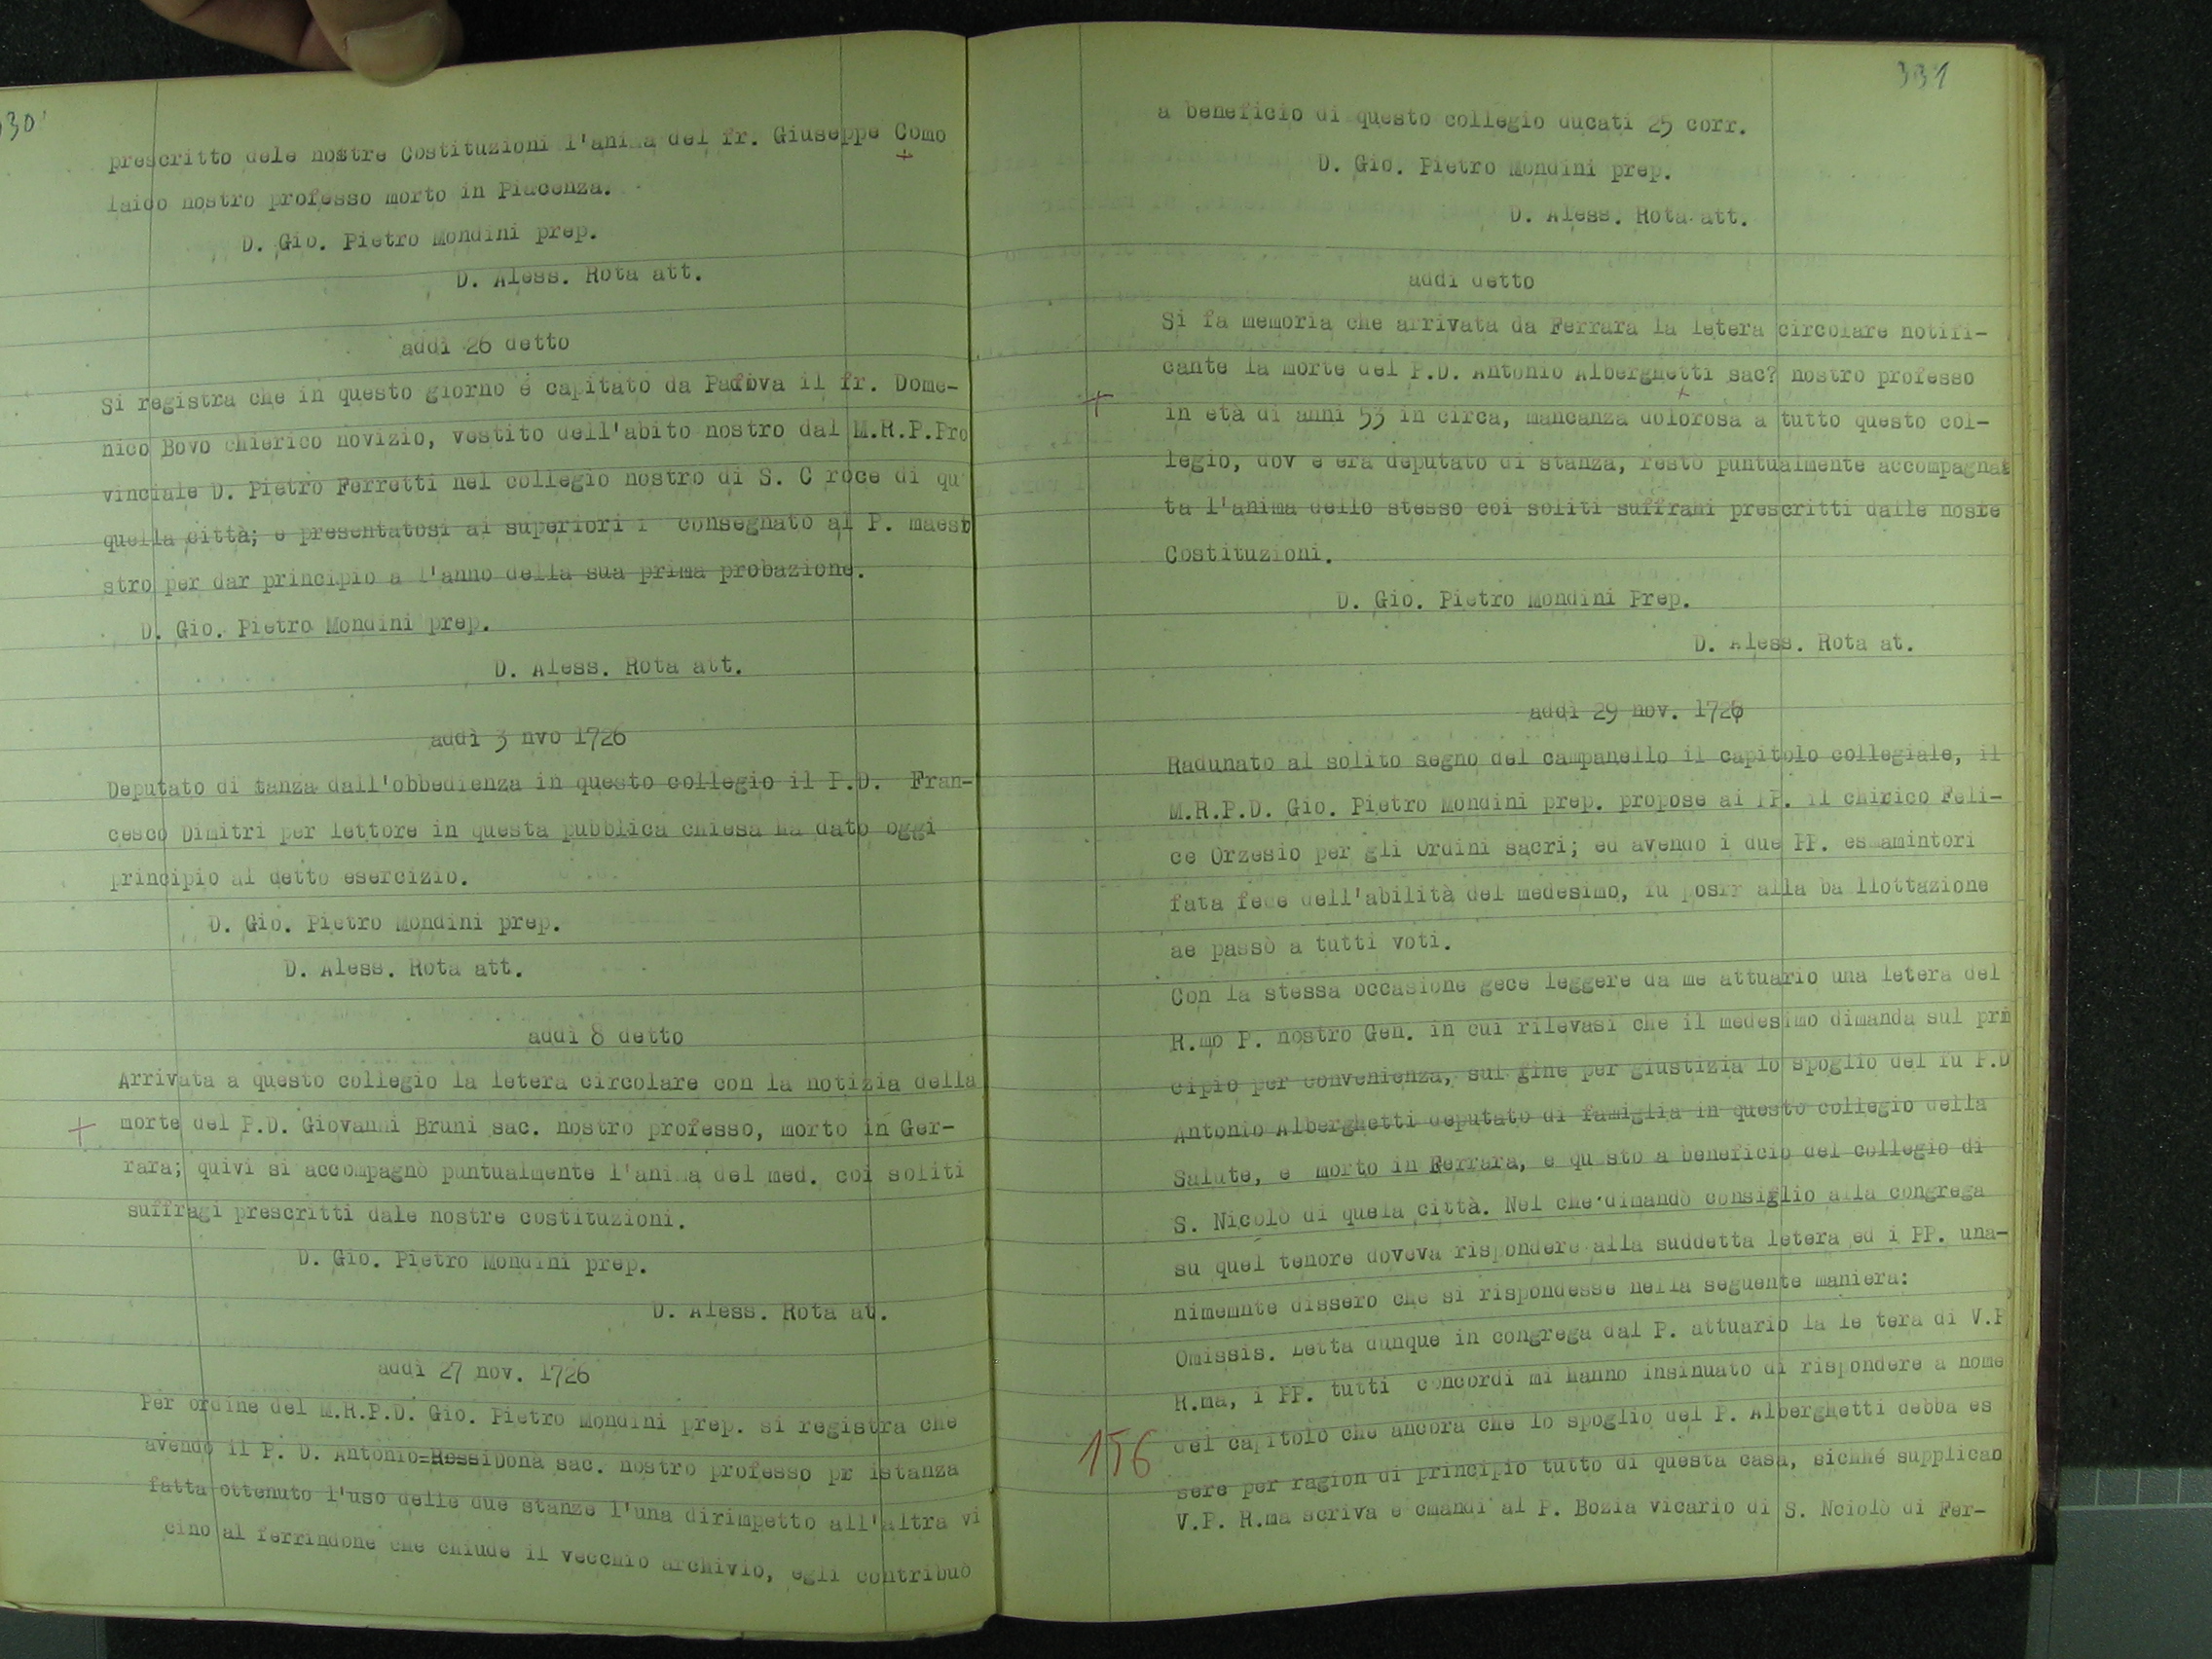 330
prescritto dele nostre Costituzioni l'anima del fr. Giuseppe Como
laico nostro professo morto in Piacenza.
D. Gio. Pietro Mondini prep.
D. Aless. Rota att.
addì 26 detto
Si registra che in questo giorno è capitato da Padova il fr. Dome-
nico Bovo chierico novizio, vestito dell'abito nostro dal M.R.P.Pro
vinciale D. Pietro Ferretti nel collegio nostro di S. C roce di qu
quella città; e presentatosi ai superiori f consegnato al P. maest
stro per dar principio a l'anno della sua prima probazione.
D. Gio. Pietro Mondini prep.
D. Aless. Rota att.
addì 3 nvo 1726
Deputato di tanza dall'obbedienza in questo collegio il P.D. Fran-
cesco Dimitri per lettore in questa pubblica chiesa ha dato oggi
principio al detto esercizio.
D. Gio. Pietro Mondini prep.
D. Aless. Rota att.
addì 8 detto
Arrivata a questo collegio la letera circolare con la notizia della
+ morte del P.D. Giovanni Bruni sac. nostro professo, morto in Ger-
rara; quivi si accompagnò puntualmente l'anima del med. coi soliti
suffragi prescritti dale nostre costituzioni.
D. Gio. Pietro Mondini prep.
D. Aless. Rota at.
addì 27 nov. 1726
Per ordine del M.R.P.D. Gio. Pietro Mondini prep. si registra che
avendo il P. D. Antonio=RossiDonà sac. nostro professo pr istanza
fatta ottenuto l'uso delle due stanze l'una dirimpetto all'altra vi
cino al ferrindone che chiude il vecchio archivio, egli contribuò
331
a beneficio di questo collegio ducati 25 corr.
D. Gio. Pietro Mondini prep.
D. Aless. Rota att.
addì detto
Si fa memoria che arrivata da Ferrara la letera circolare notifi-
cante la morte del P.D. Antonio Alberghetti sac? nostro professo
+ in età di anni 53 in circa, mancanza dolorosa a tutto questo col-
legio, dov e era deputato di stanza, restò puntualmente accompagna
ta l'anima dello stesso coi soliti suffrahi prescritti dalle noste
Costituzioni.
D. Gio. Pietro Mondini Prep.
D. Aless. Rota at.
addì 29 nov. 1726
Radunato al solito segno del campanello il capitolo collegiale, il
M.R.P.D. Gio. Pietro Mondini prep. propose ai PP. il chirico Feli-
ce Orzesio per gli Ordini sacri; ed avendo i due PP. es amintori
fata fece dell'abilità del medesimo, fu posrr alla ba llottazione
ae passò a tutti voti.
Con la stessa occasione gece leggere da me attuario una letera del
R.mo P. nostro Gen. in cui rilevasi che il medesimo dimanda sul prin
cipio per convenienza, sul fine per giustizia lo spoglio del fu P.D
Antonio Alberghetti deputato di famiglia in questo collegio della
Salute, e morto in Ferrara, e qu sto a beneficio del collegio di
S. Nicolò di quela città. Nel che dimandò consiglio alla congrega
su quel tenore doveva rispondere alla suddetta letera ed i PP. una-
nimemnte dissero che si rispondesse nella seguente maniera:
Omissis. Letta dunque in congrega dal P. attuario la le tera di V.P
R.ma, i PP. tutti concordi mi hanno insinuato di rispondere a nome
del capitolo che ancora che lo spoglio del P. Alberghetti debba es
156 sere per ragion di principio tutto di questa casa, sichhé supplicao
V.P. R.ma scriva e cmandi al P. Bozia vicario di S. Nciolò di Fer-